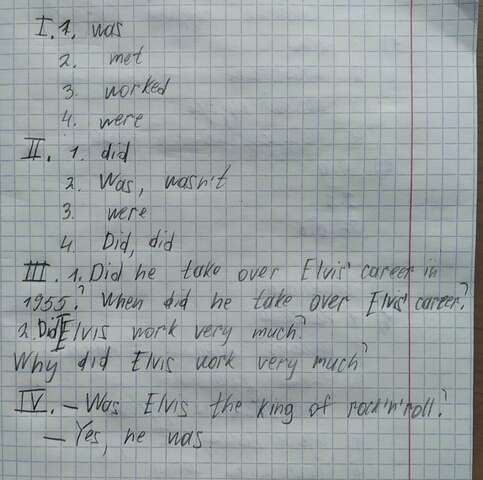 I. 1. was
2. met
3. worked
4. were
II. 1. did
2. Was, wasn't
3. were
4. Did, did
III. 1. Did he take over Elvis' career in
1955? When did he take over Elvis' career?
2. Did Elvis work very much?
Why did Elvis work very much?
IV. – Was Elvis the king of rock'n'roll?
– Yes, he was.